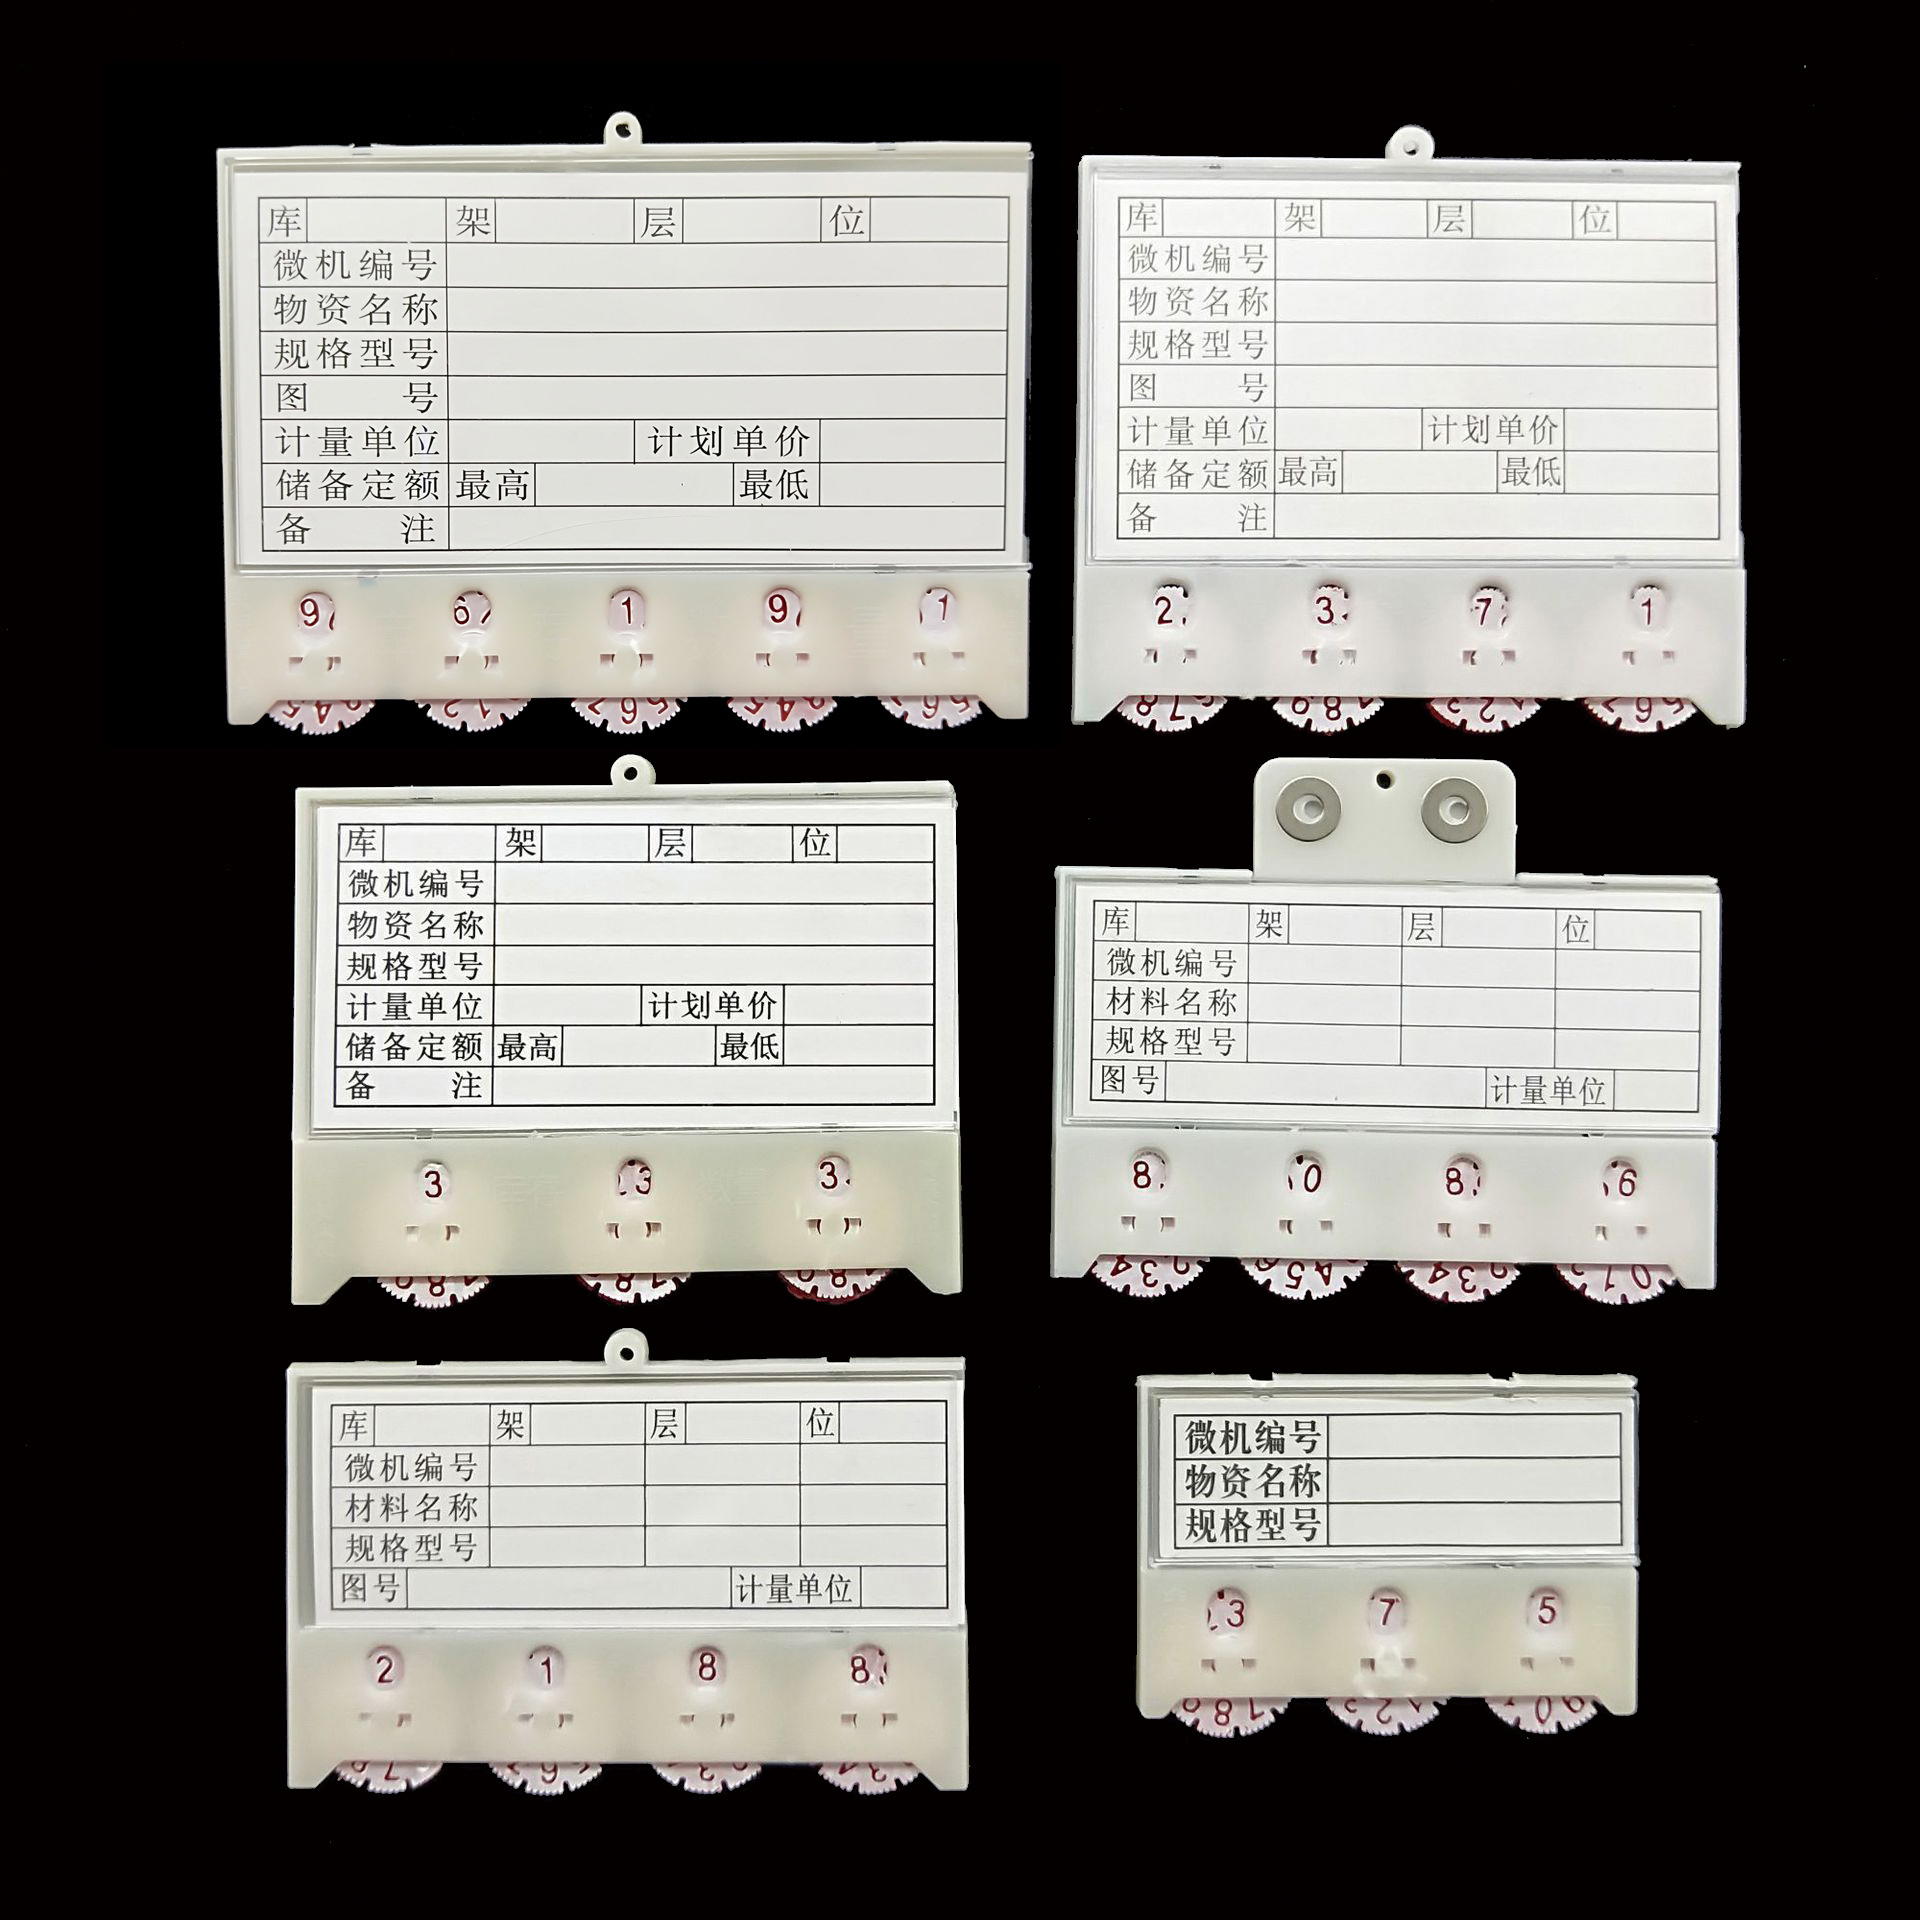 库 架 层 位
微机编号
物资名称
规格型号
图 号
计量单位 计划单价
储备定额 最高 最低
备 注
9 6 1 9 1
库 架 层 位
微机编号
物资名称
规格型号
图 号
计量单位 计划单价
储备定额 最高 最低
备 注
2 3 7 1
库 架 层 位
微机编号
物资名称
规格型号
计量单位 计划单价
储备定额 最高 最低
备 注
3 3 3
库 架 层 位
微机编号
材料名称
规格型号
图号 计量单位
8 0 8 6
库 架 层 位
微机编号
材料名称
规格型号
图号 计量单位
2 1 8 8
微机编号
物资名称
规格型号
3 7 5